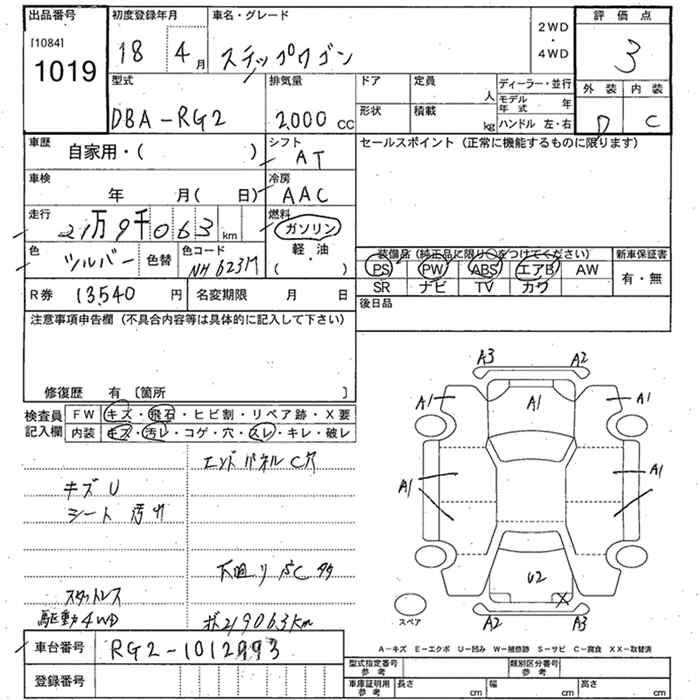 出品番号 初度登録年月 車名・グレード 2WD・4WD 評価点
[1084] 1019 18 4月 ステップワゴン 3
型式 排気量 ドア 定員 人 ディーラー・並行 外装 内装
DBA-RG2 2,000 CC 形状 積載 kg モデル年式 年 D C
ハンドル 左・右
車歴 自家用・( ) シフト AT セールスポイント (正常に機能するものに限ります)
車検 年 月( 日) 冷房 AAC
走行 21万9千063 km 燃料 ガソリン
軽・油
( )
色 シルバー 色替 色コード NH623M
装備品(純正品に限り○をつけてください) 新車保証書
PS PW ABS エアB AW 有・無
SR ナビ TV カワ
R券 13,540 円 名変期限 月 日 後日品
注意事項申告欄 (不具合内容等は具体的に記入して下さい)
修復歴 有 〔箇所 〕
検査員記入欄 FW キズ・飛石・ヒビ割・リペア跡・X要
内装 キズ・汚レ・コゲ・穴・スレ・キレ・破レ
エンドパネルC穴
キズU
シート 汚レ
下廻り
スタットレス
駆動4WD 219063km
A3 A2
A1 A1 A1
A1 A1
U2 X
スペア A2 A3
A-キズ E-エクボ U-凹み W-補修跡 S-サビ C-腐食 XX-取替済
車台番号 RG2-1012993
登録番号
型式指定番号 参考 類別区分番号 参考
車庫証明用 参考 長さ cm 幅 cm 高さ cm